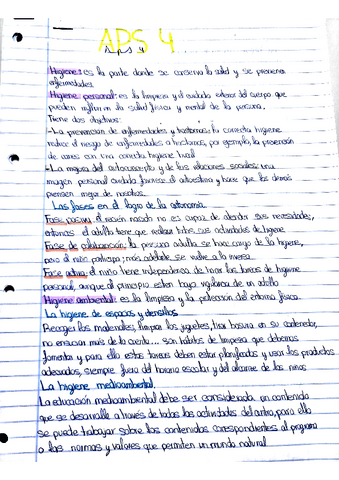 APS 4
APS 4
Higiene: es la parte donde se conserva la salud y se previenen
enfermedades.
Higiene personal: es la limpieza y el cuidado exterior del cuerpo que
pueden influir en la salud física y mental de la persona.
Tiene dos objetivos:
-La prevención de enfermedades y trastornos: la correcta higiene
reduce el riesgo de enfermedades o trastornos, por ejemplo, la prevención
de caries con una correcta higiene bucal
-La mejora del autoconcepto y de las relaciones sociales: una
imagen personal cuidada favorece el autoestima y hace que los demás
piensen mejor de nosotros.
Las fases en el logro de la autonomía
Fase pasiva: el recién nacido no es capaz de atender sus necesidades,
entonces el adulto tiene que realizar todas sus actividades de higiene
Fase de colaboración: la persona adulta se hace cargo de la higiene,
pero el niño participa; más adelante se vuelve a la inversa
Fase activa: el niño tiene independencia de hacer las tareas de higiene
personal, aunque al principio esten bajo vigilancia de un adulto
Higiene ambiental: es la limpieza y la protección del entorno físico.
La higiene de espacios y utensilios
Recoger los materiales, limpiar los juguetes, tirar basura en su contenedor,
no ensuciar más de la cuenta... son hábitos de limpieza que debemos
fomentar y para ello estas tareas deben estar planificadas y usar los productos
adecuados, siempre fuera del horario escolar y del alcance de los niños
La higiene medioambiental.
La educación medioambiental debe ser considerada un contenido
que se desarrolle a través de todas las actividades del centro, para ello
se puede trabajar sobre los contenidos correspondientes al programa
o las normas y valores que permiten un mundo natural